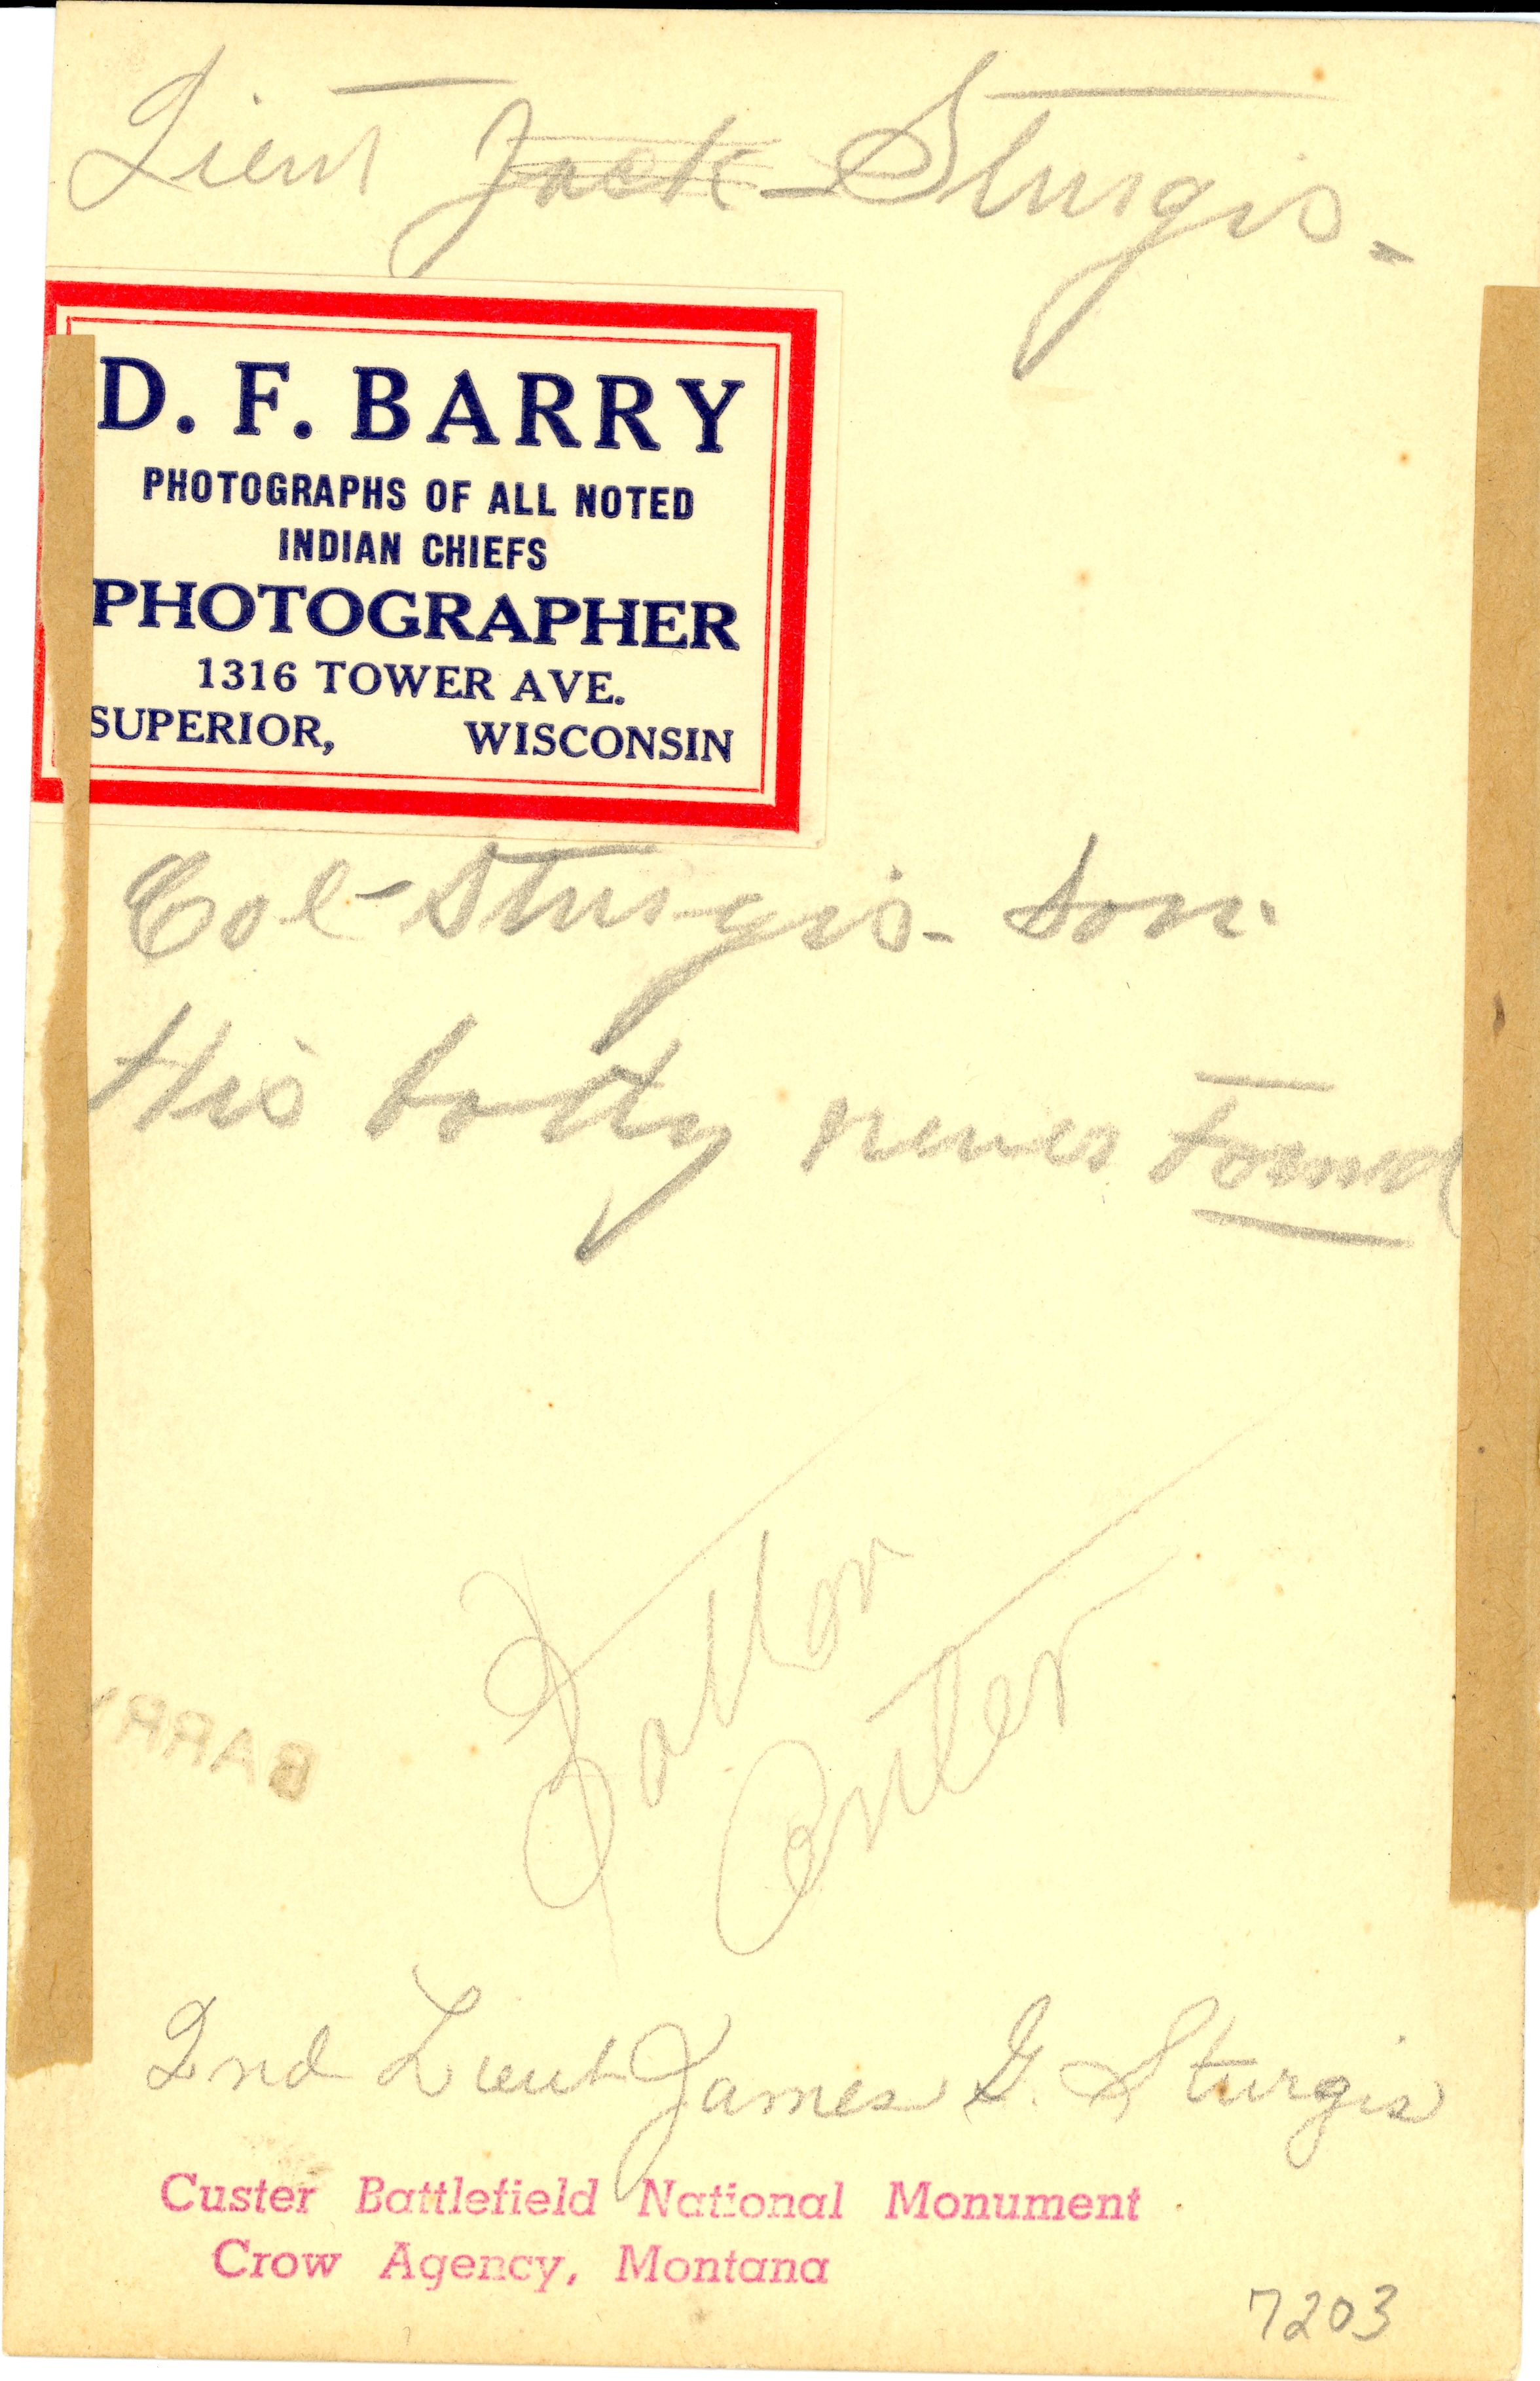 Lieut Jack Sturgis.
D. F. BARRY
PHOTOGRAPHS OF ALL NOTED
INDIAN CHIEFS
PHOTOGRAPHER
1316 TOWER AVE.
SUPERIOR, WISCONSIN
Col - Sturgis - son.
His body never found
BARRY
2nd Lieut James G. Sturgis
Custer Battlefield National Monument
Crow Agency, Montana
7203